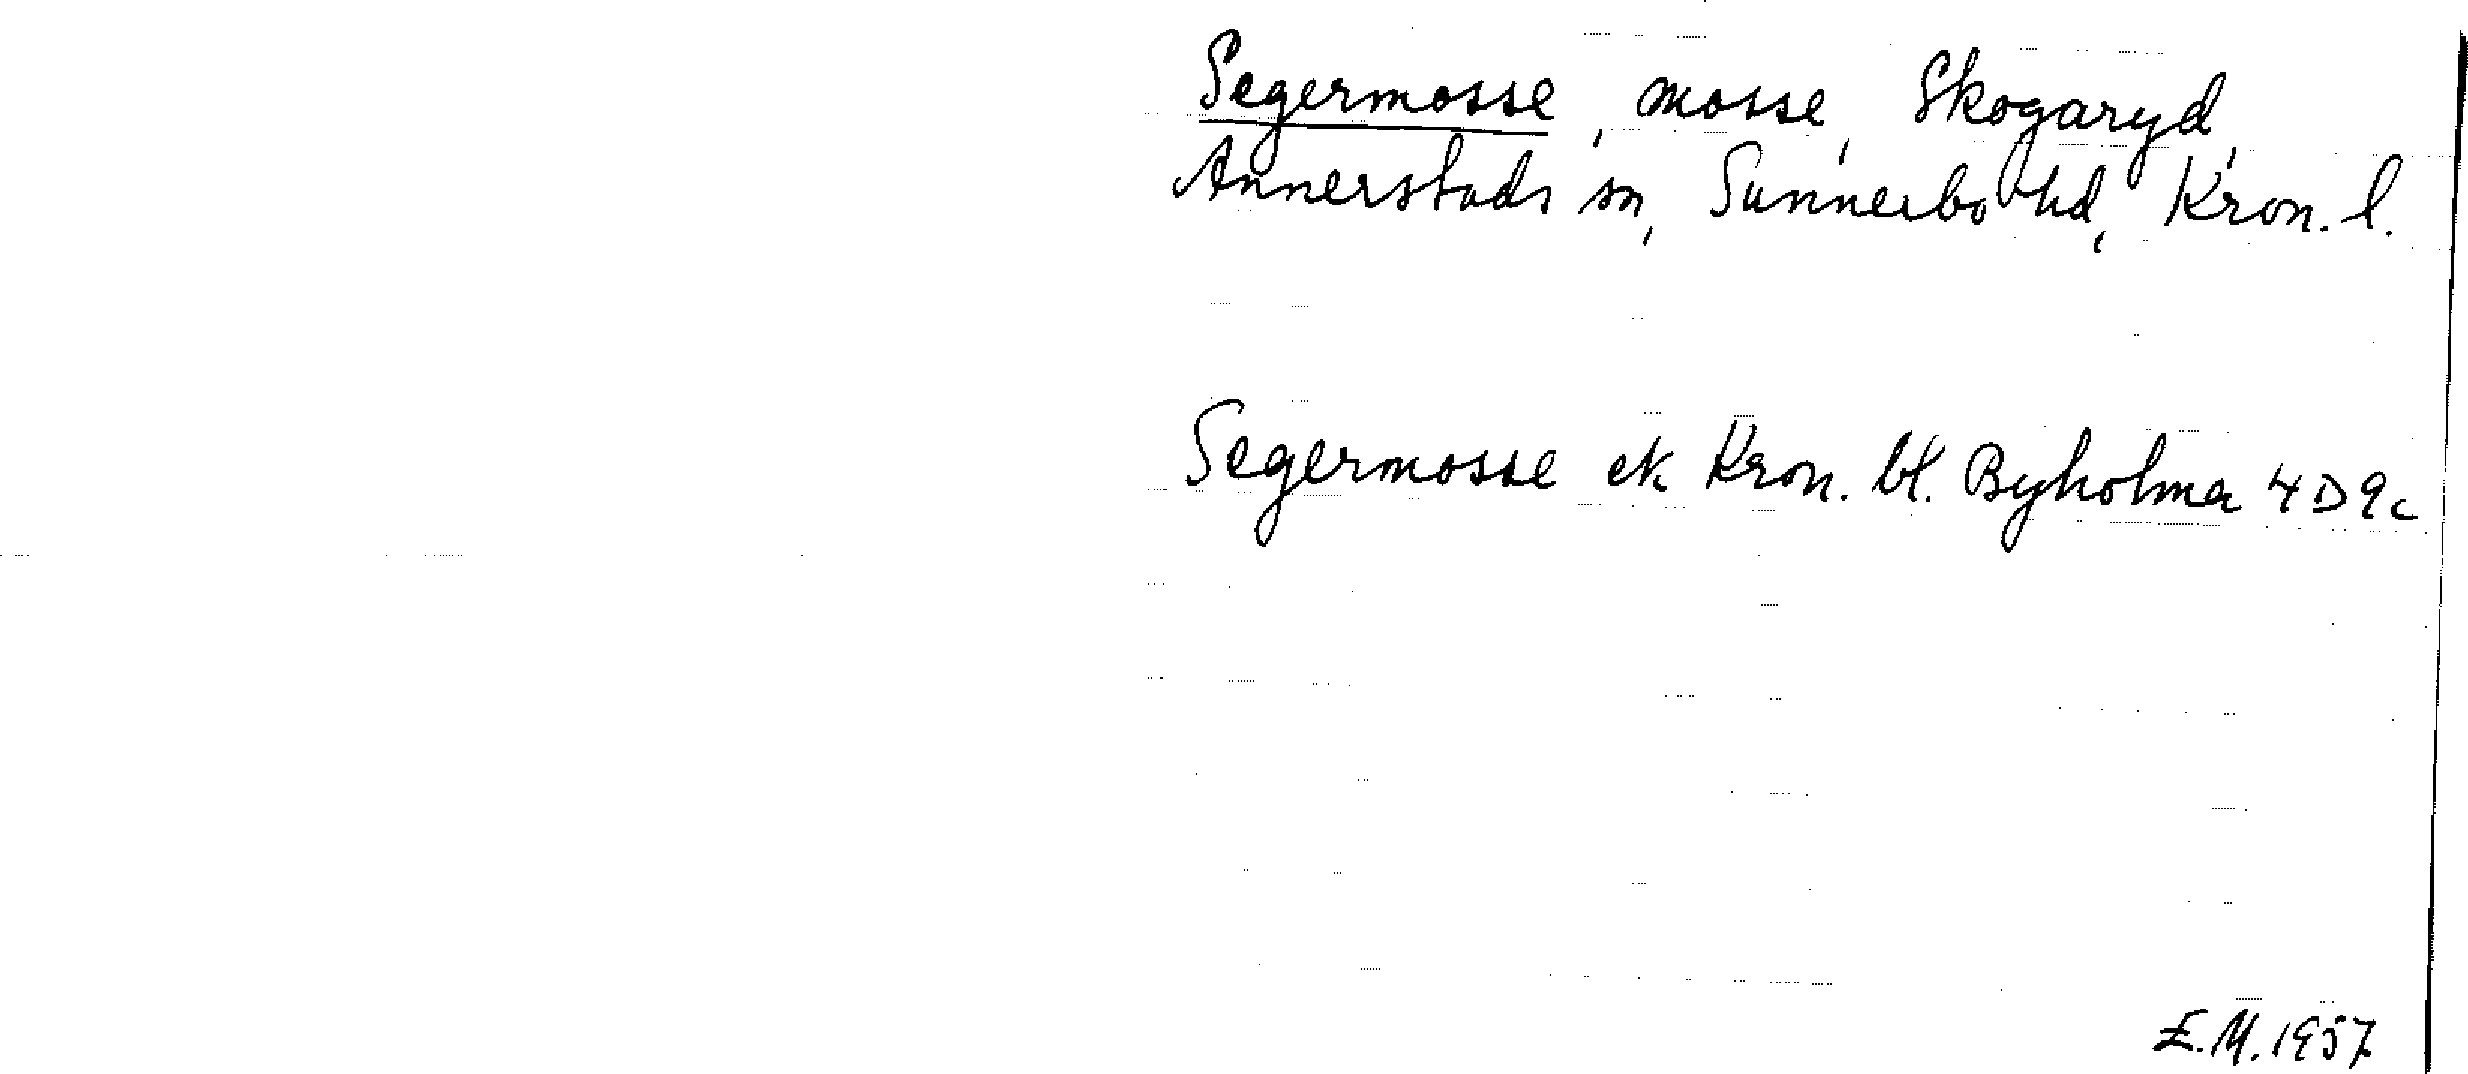 Segermosse, mosse, Skogaryd,
Annerstads sn, Sunnerbo hd, Kron. l.
Segermosse ek Kron. bl. Byholma 4D9c
E.M. 1957